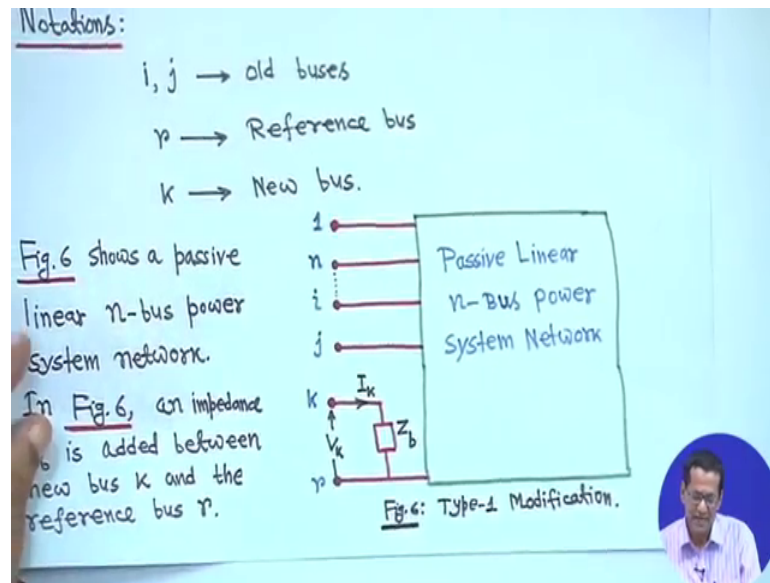 Notations:
i, j → old buses
r → Reference bus
k → New bus.
Fig.6 shows a passive
linear n-bus power
system network.
In Fig.6, an impedance
is added between
new bus k and the
reference bus r.
1
n
i
j
k
r
I_k
V_k
Z_b
Passive Linear
n-Bus power
System Network
Fig.6: Type-1 Modification.